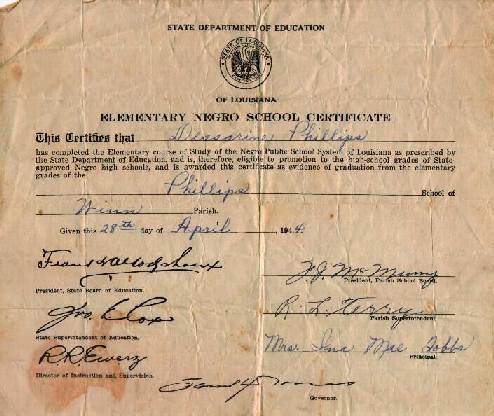 STATE DEPARTMENT OF EDUCATION
STATE OF LOUISIANA
OF LOUISIANA
ELEMENTARY NEGRO SCHOOL CERTIFICATE
This Certifies that Phillips
has completed the Elementary course of Study of the Negro Public School System of Louisiana as prescribed by
the State Department of Education, and is, therefore, eligible to promotion to the high-school grades of State
approved Negro high schools, and is awarded this certificate as evidence of graduation from the elementary
grades of the
Phillips School of
Winn Parish.
Given this 28th day of April 1944
President, State Board of Education.
President, Parish School Board.
Jno. E. Coxe
State Superintendent of Education.
R. L. Terry
Parish Superintendent
R R Ewerz
Director of Instruction and Supervision.
Mrs. Ina Mae
Principal.
Governor.